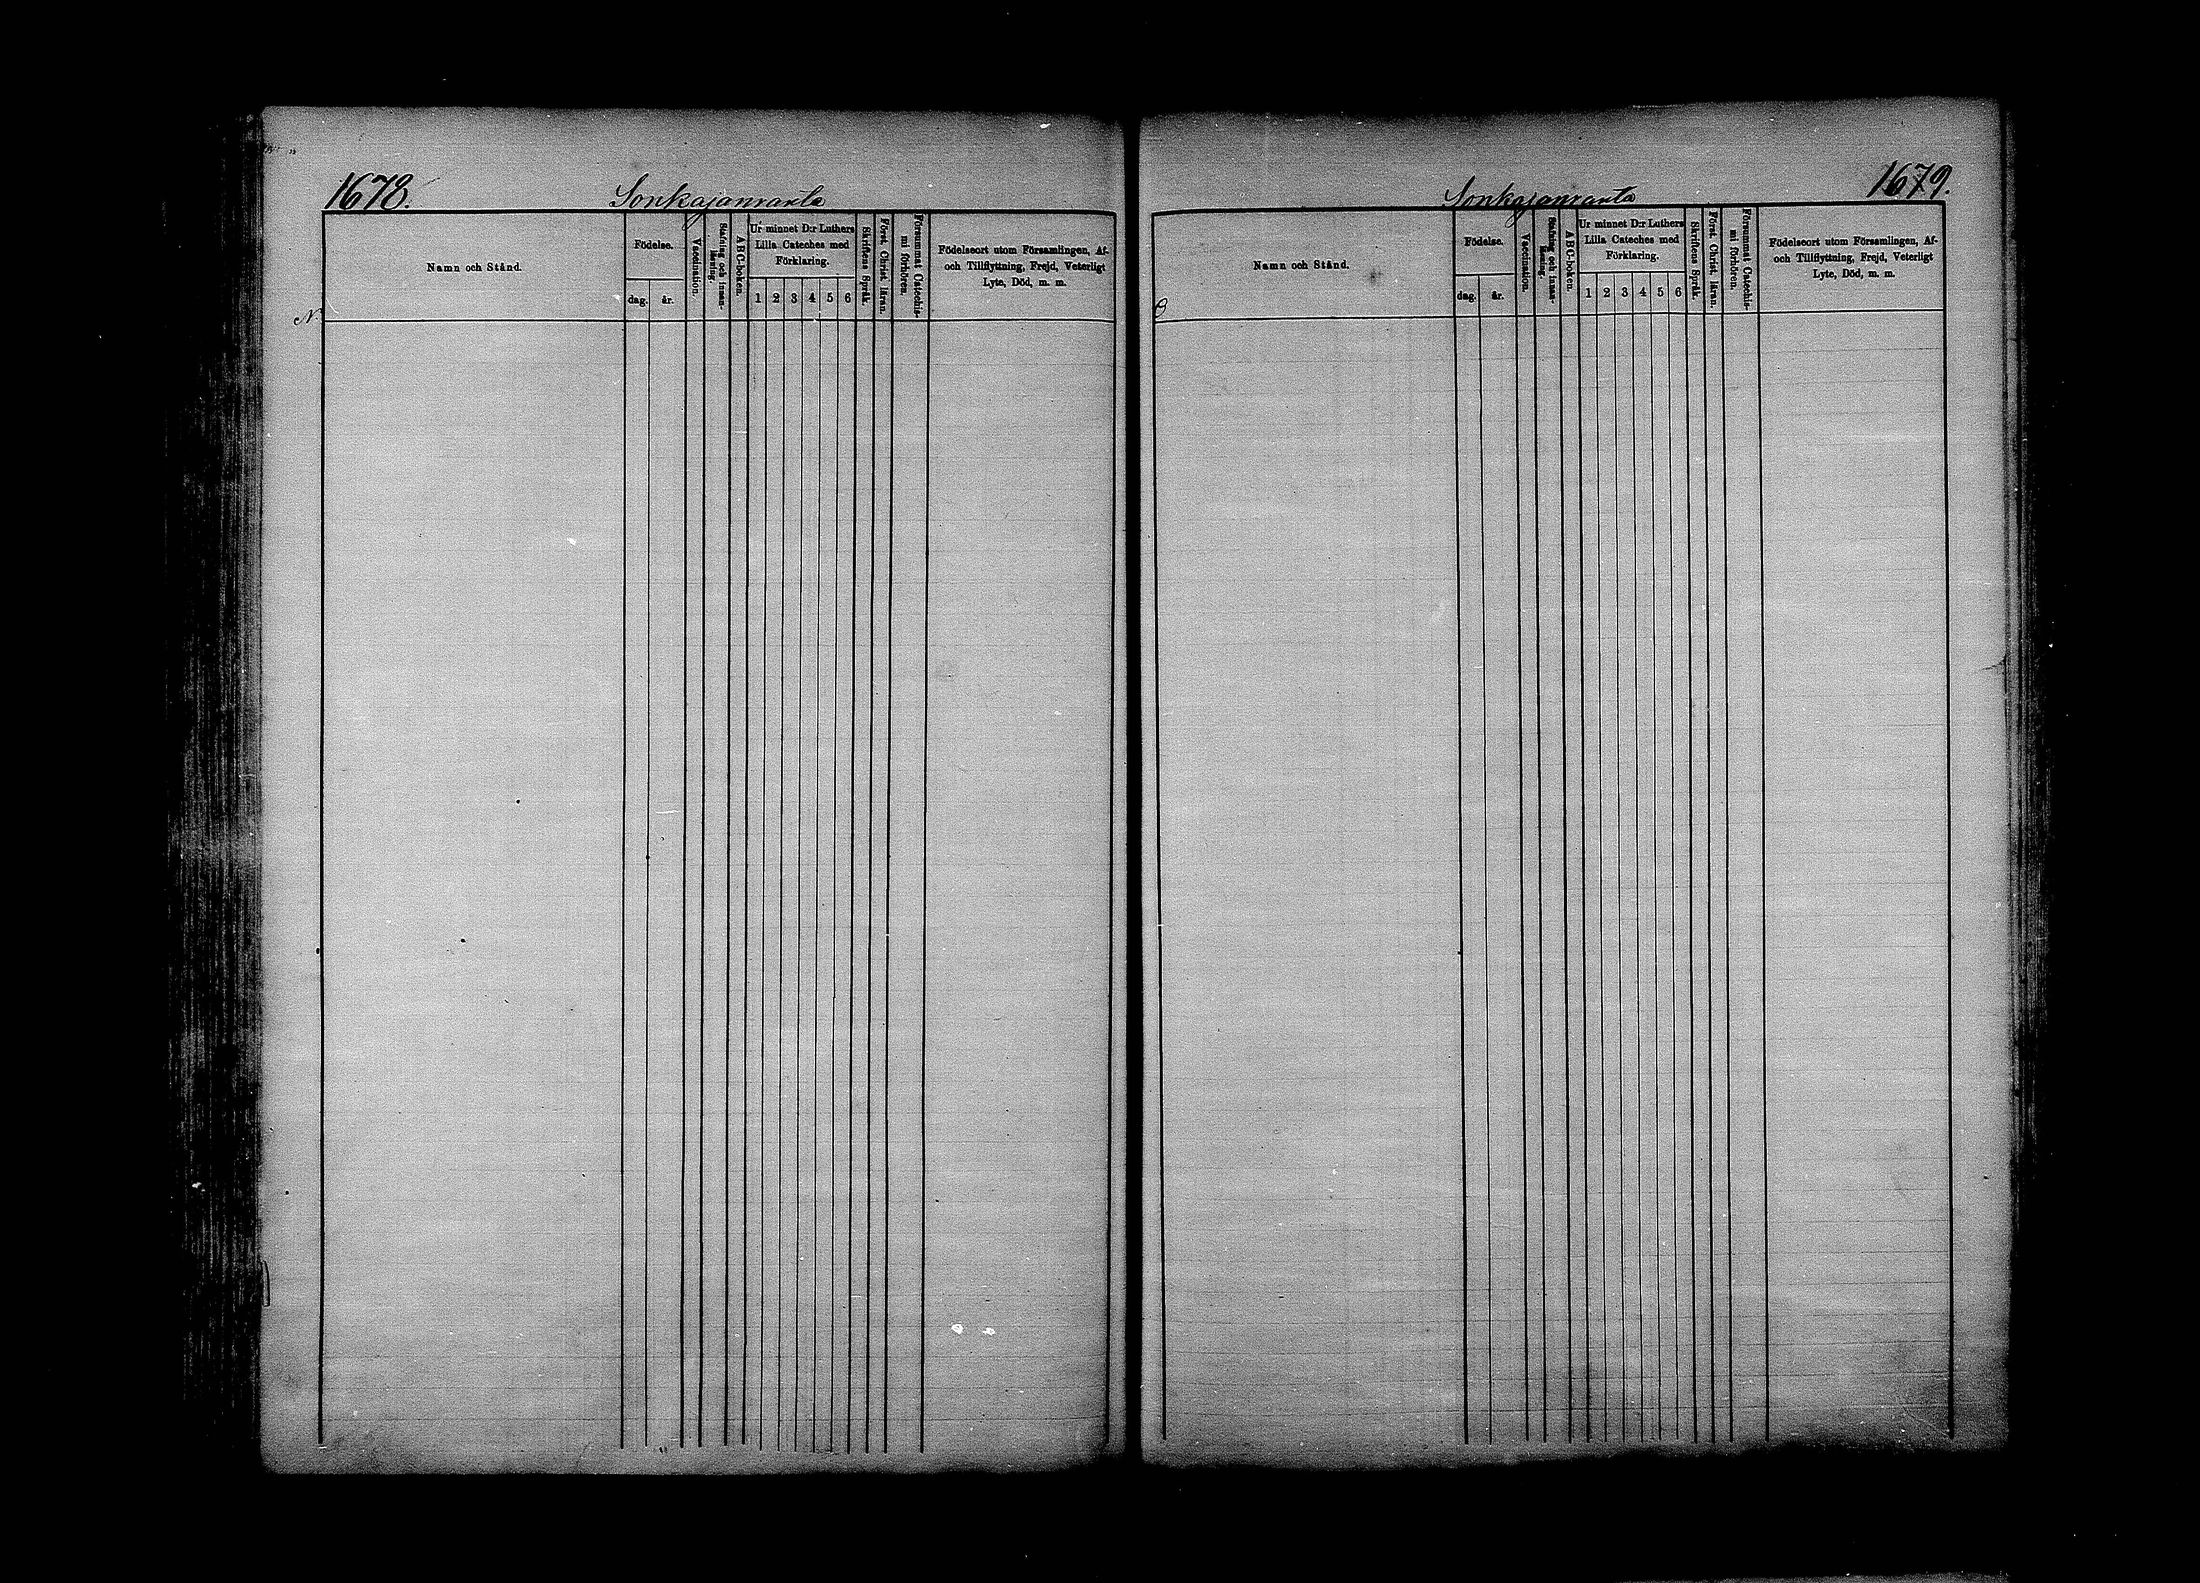 1678.
Sonkajanranta
Namn och Stånd.
Födelse.
dag.
år.
Vaccination.
Stafning och innan-
läsning.
ABC-boken.
Ur minnet D:r Luthers
Lilla Cateches med
Förklaring.
1 2 3 4 5 6
Skriftens Språk.
Först. Christ. läran.
Försummat Catechis-
mi förhören.
Födelseort utom Församlingen, Af-
och Tillflyttning, Frejd, Veterligt
Lyte, Död, m. m.
N
1679.
Sonkajanranta
Namn och Stånd.
Födelse.
dag.
år.
Vaccination.
Stafning och innan-
läsning.
ABC-boken.
Ur minnet D:r Luthers
Lilla Cateches med
Förklaring.
1 2 3 4 5 6
Skriftens Språk.
Först. Christ. läran.
Försummat Catechis-
mi förhören.
Födelseort utom Församlingen, Af-
och Tillflyttning, Frejd, Veterligt
Lyte, Död, m. m.